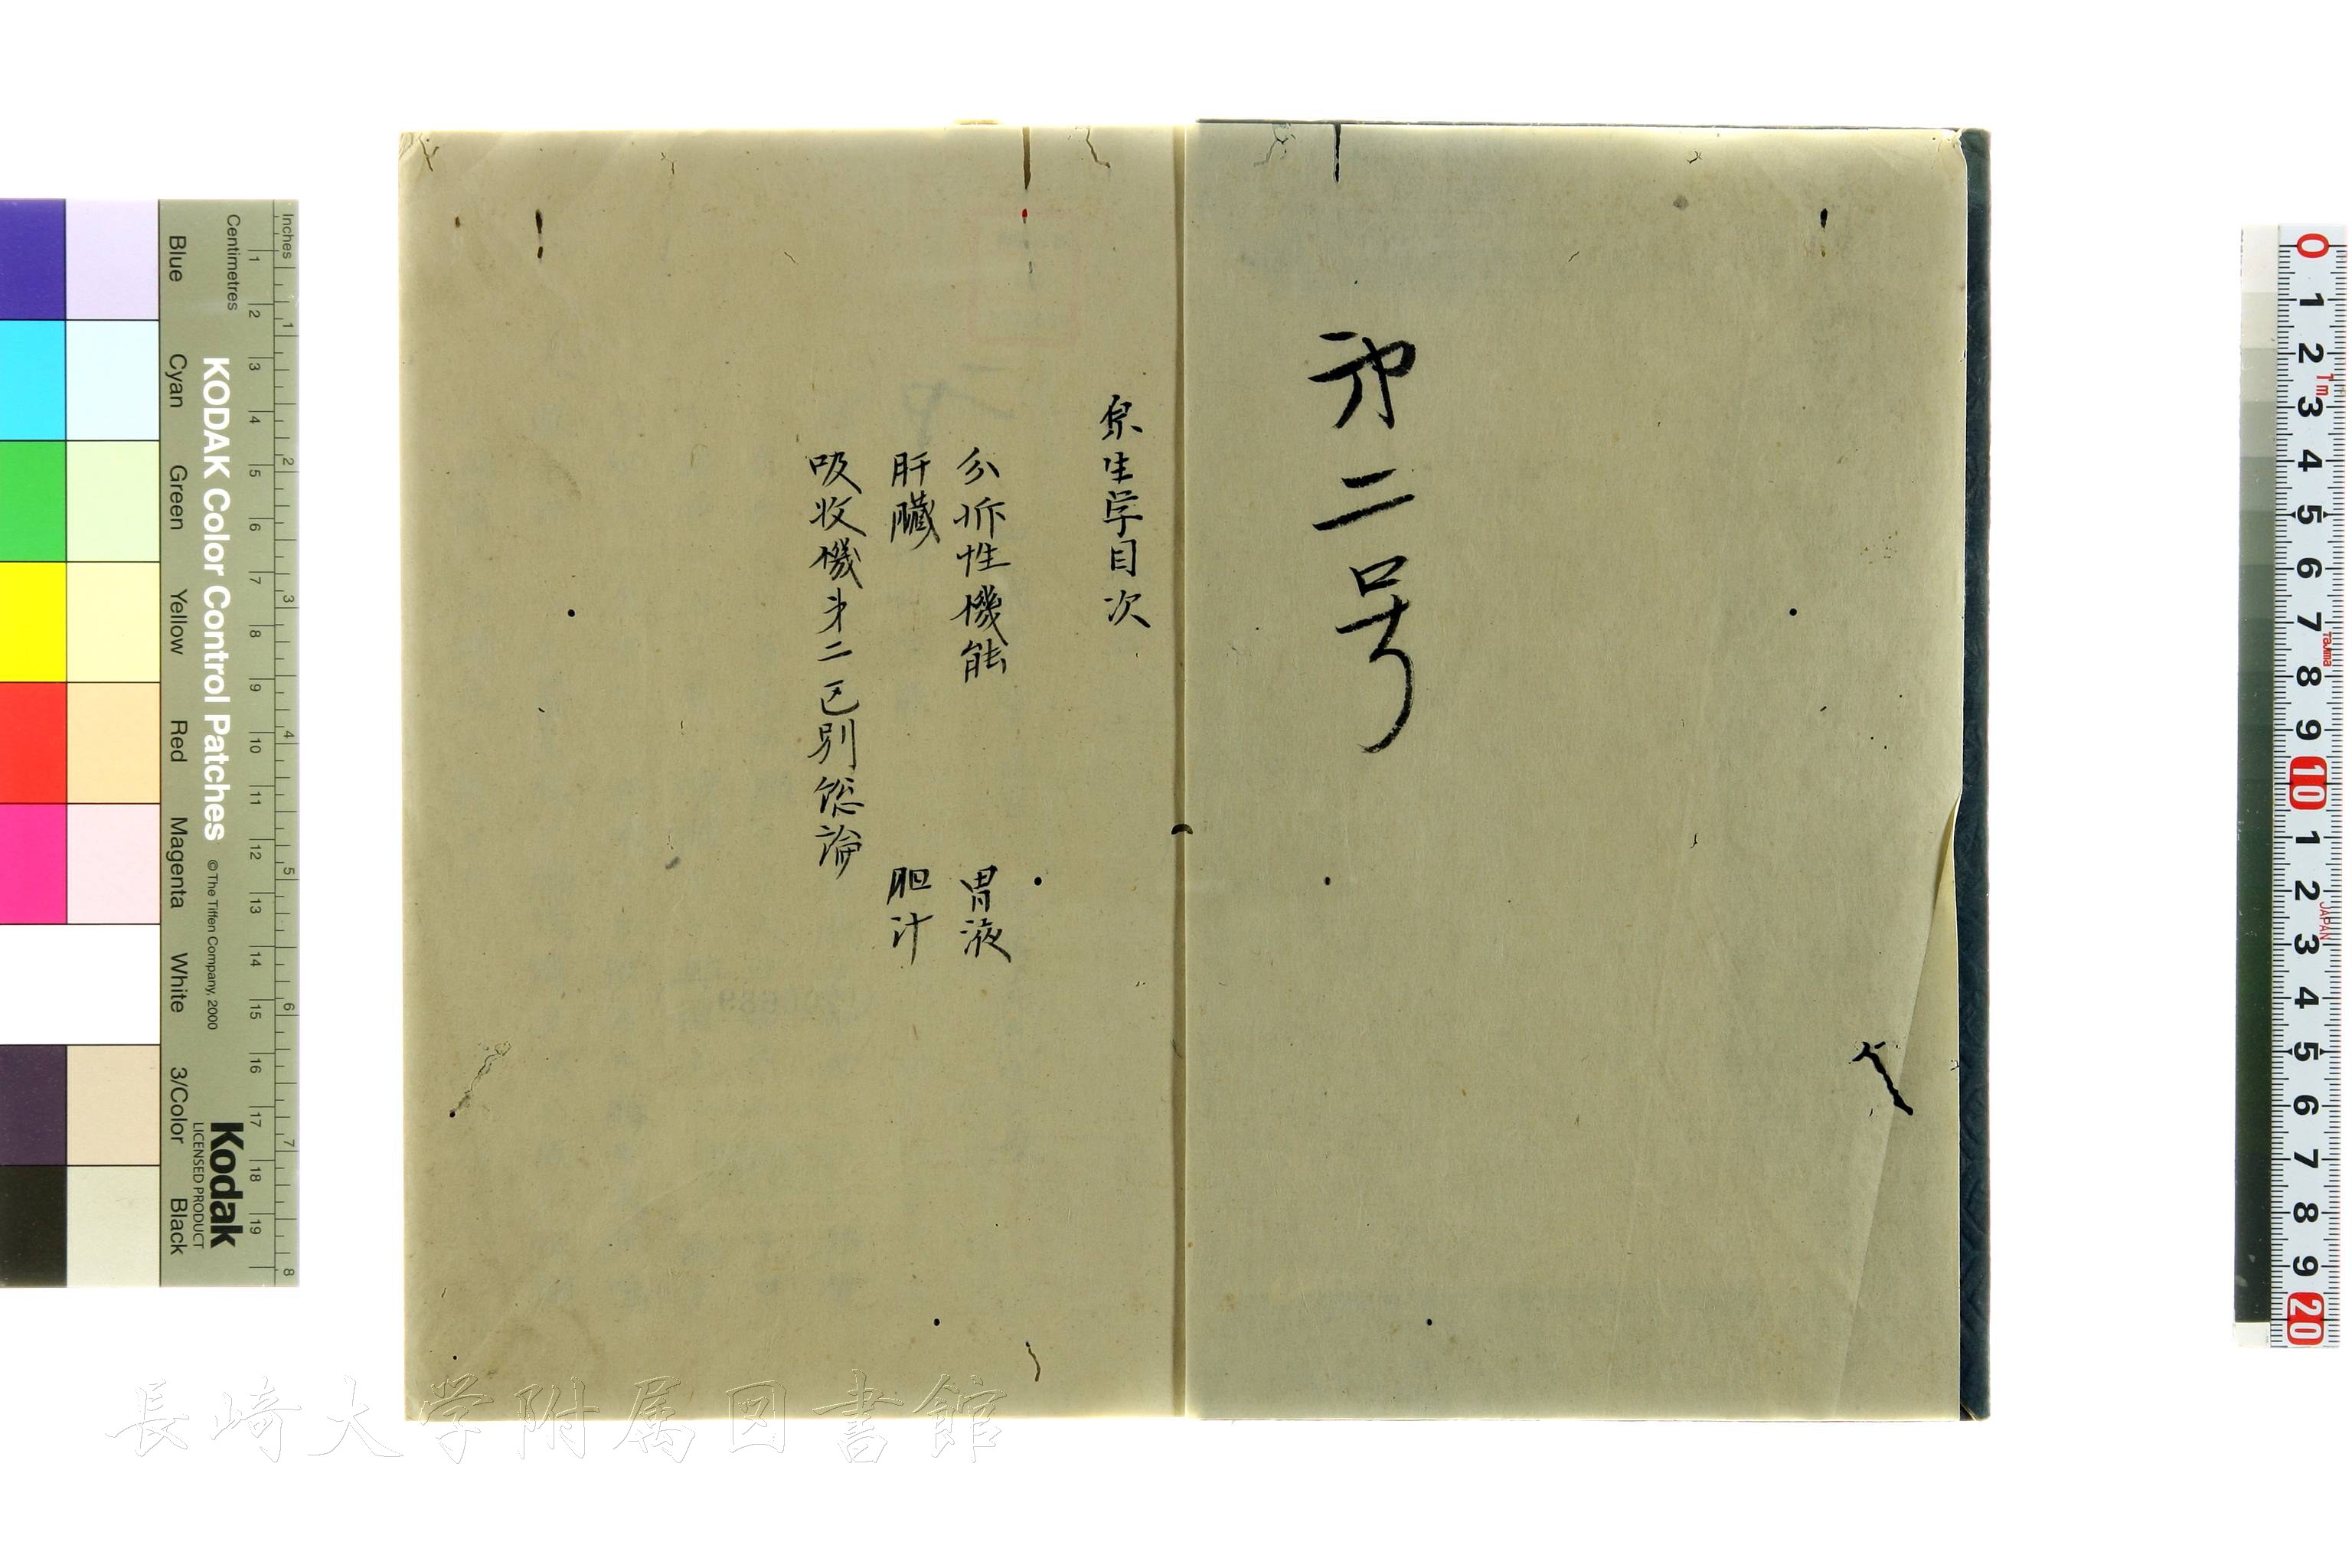 第二号
原生学目次
分拆性機能 胃液
肝臓 胆汁
吸收機第二区別総論
Inches
Centimetres
Blue Cyan Green Yellow Red Magenta White 3/Color Black
KODAK Color Control Patches
© The Tiffen Company, 2000
Kodak
LICENSED PRODUCT
1 2 3 4 5 6 7 8 9 10 11 12 13 14 15 16 17 18 19
1 2 3 4 5 6 7 8
0 1 2 3 4 5 6 7 8 9 10 1 2 3 4 5 6 7 8 9 20
1m
Tajima
JAPAN
長崎大学附属図書館